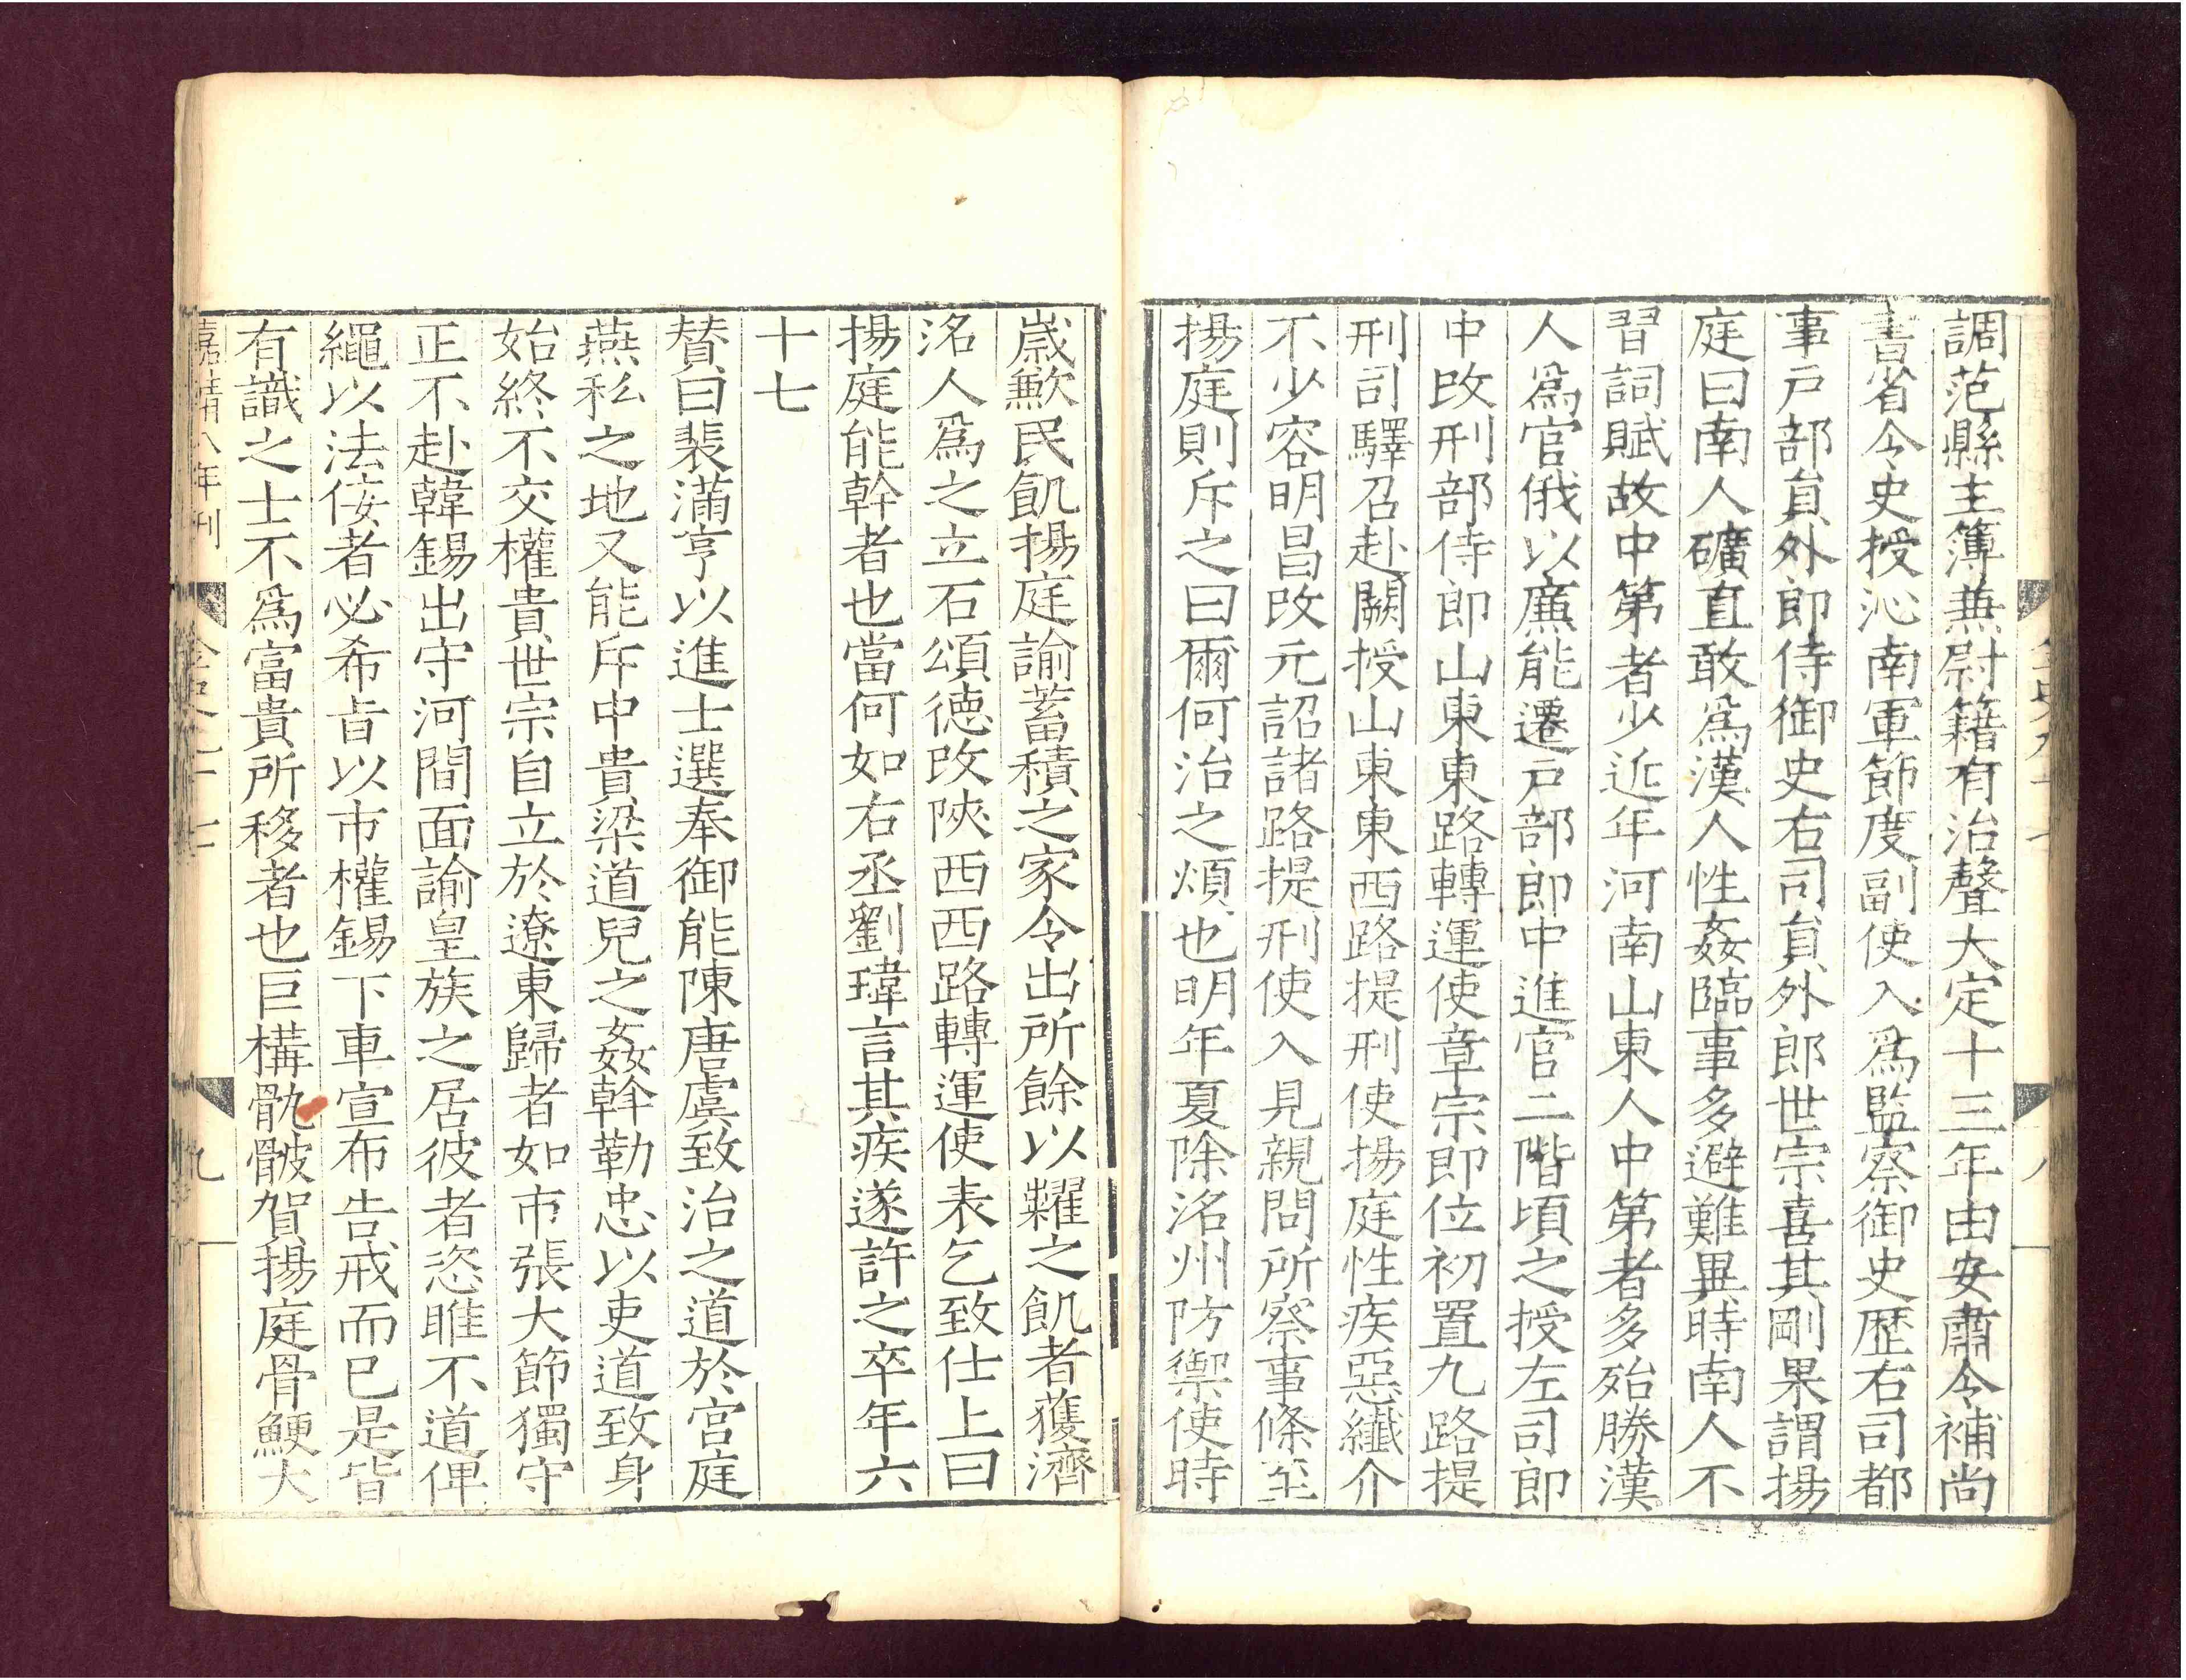 調范縣主簿兼尉籍有治聲大定十三年由安肅令補尚
書省令史授沁南軍節度副使入爲監察御史歷右司都
事戶部員外郎侍御史右司員外郎世宗喜其剛果謂揚
庭曰南人礦直敢爲漢人性姦臨事多避難異時南人不
習詞賦故中第者少近年河南山東人中第者多殆勝漢
人爲官俄以廉能遷戶部郎中進官二階頃之授左司郎
中改刑部侍郎山東東路轉運使章宗即位初置九路提
刑司驛召赴闕授山東東西路提刑使揚庭性疾惡纖介
不少容明昌改元詔諸路提刑使入見親問所察事條至
揚庭則斥之曰爾何治之煩也明年夏除洺州防禦使時
金史九十七
八
歲歉民飢揚庭諭蓄積之家令出所餘以糶之飢者獲濟
洺人爲之立石頌德改陝西西路轉運使表乞致仕上曰
揚庭能幹者也當何如右丞劉瑋言其疾遂許之卒年六
十七
贊曰裴滿亨以進士選奉御能陳唐虞致治之道於宮庭
燕私之地又能斥中貴梁道兒之姦斡勒忠以吏道致身
始終不交權貴世宗自立於遼東歸者如市張大節獨守
正不赴韓錫出守河間面諭皇族之居彼者恣睢不道俾
繩以法佞者必希旨以市權錫下車宣布告戒而已是皆
有識之士不爲富貴所移者也巨構骫骳賀揚庭骨鯁大
嘉靖八年刊
金史九十七
九